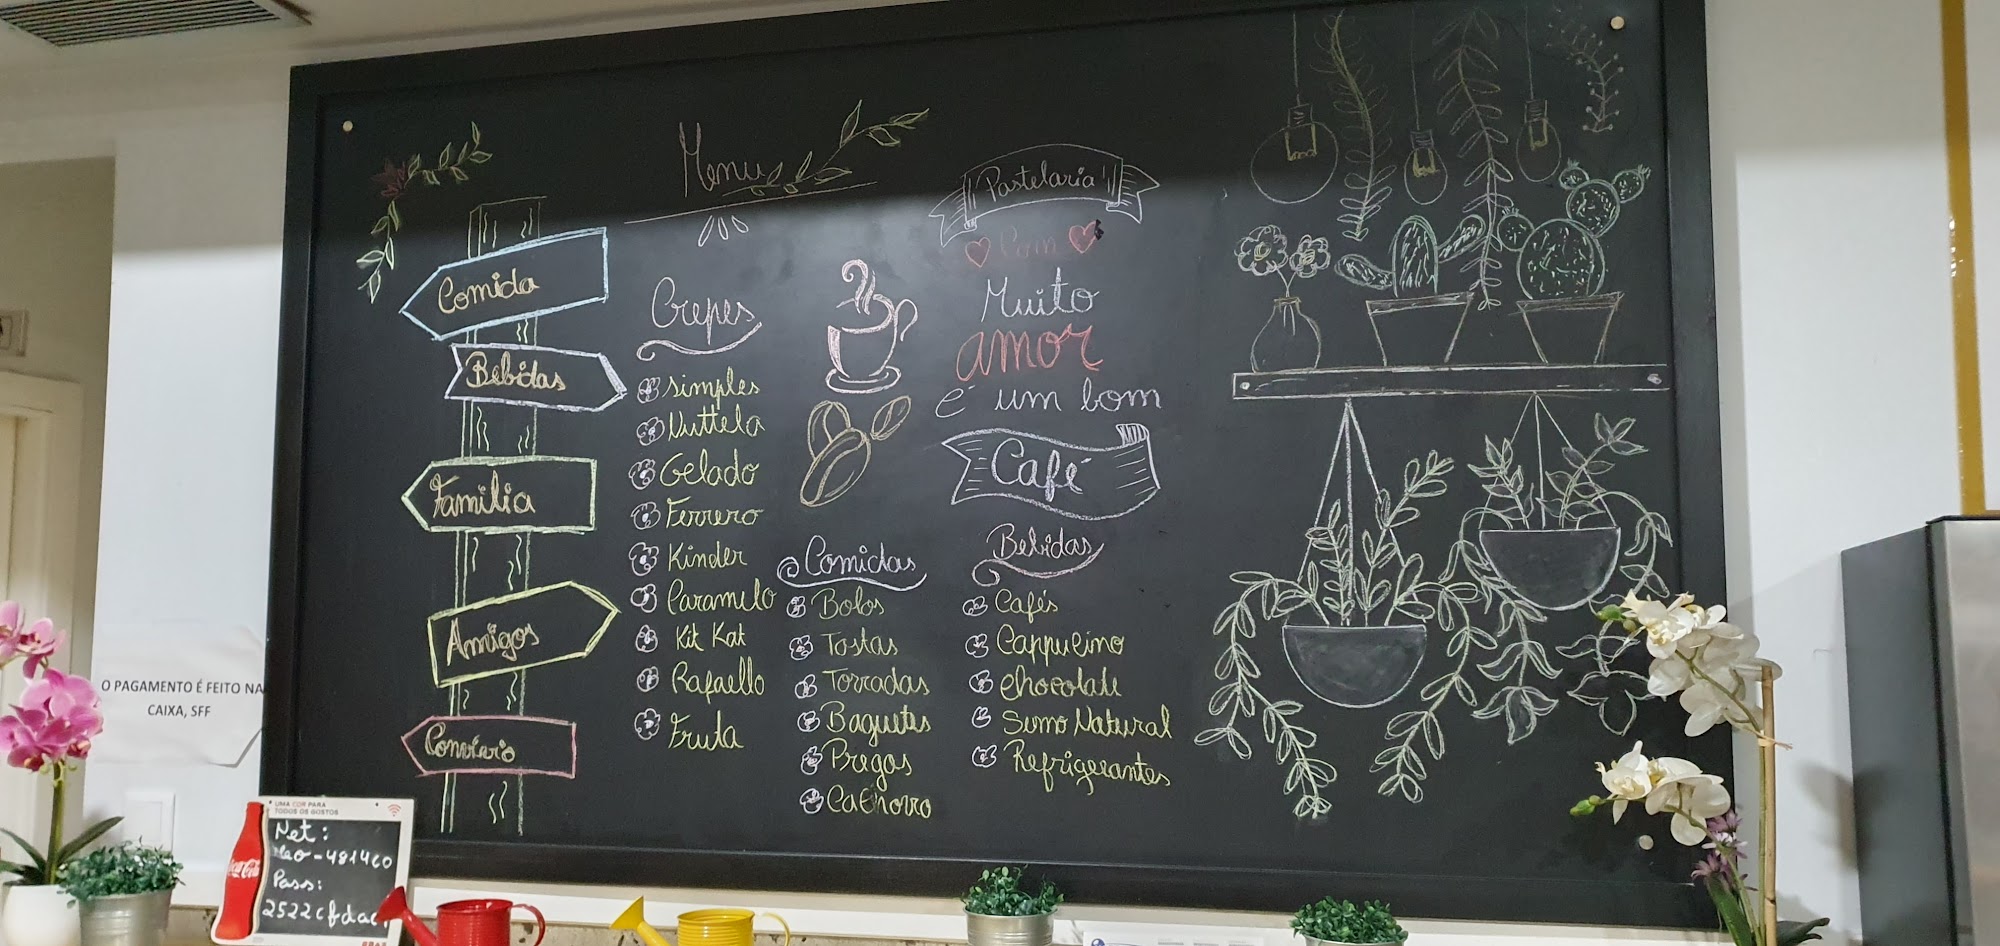 Menu
Comida
Bebidas
Familia
Amigos
Convívio
Crepes
simples
Nuttela
Gelado
Ferrero
Kinder
Caramelo
Kit Kat
Rafaello
Fruta
Pastelaria
Com
Muito
amor
é um bom
Café
Comidas
Bolos
Tostas
Torradas
Baguetes
Pregos
Cachorro
Bebidas
Cafés
Cappucino
Chocolate
Sumo Natural
Refrigerantes
O PAGAMENTO É FEITO NA
CAIXA, SFF
UMA COR PARA
TODOS OS GOSTOS
Coca-Cola
Net:
Pass: